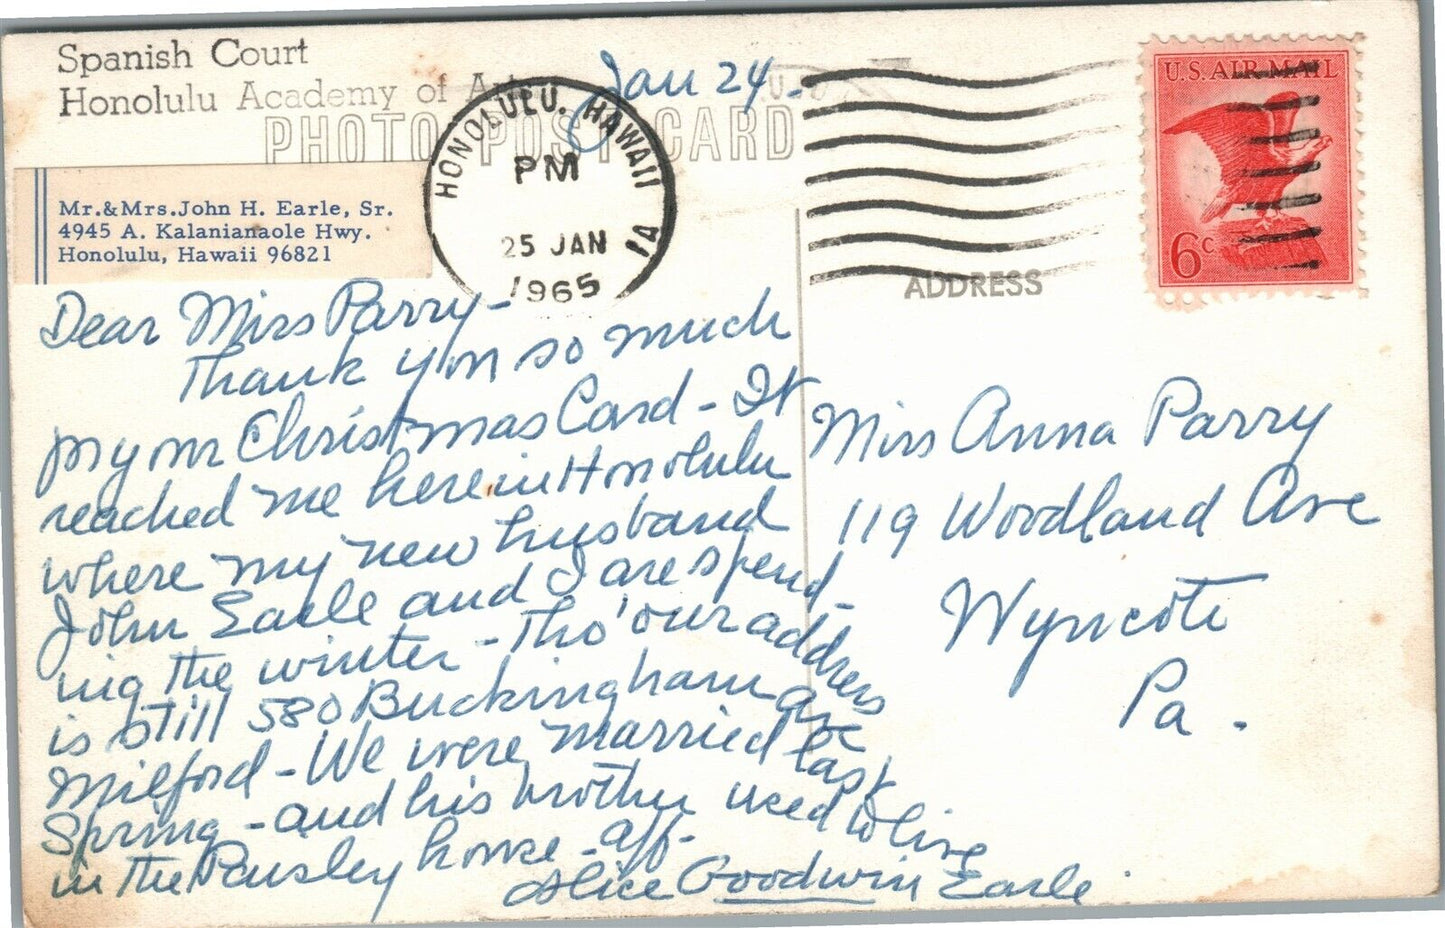 Spanish Court
Honolulu Academy of Arts
PHOTO POST CARD
Jan 24 -
HONOLULU, HAWAII
PM
25 JAN
1965
1A
U.S. AIR MAIL
6c
ADDRESS
Mr.&Mrs.John H. Earle, Sr.
4945 A. Kalanianaole Hwy.
Honolulu, Hawaii 96821
Dear Miss Parry -
Thank you so much
for your Christmas Card - It
reached me here in Honolulu
where my new husband
John Earle and I are spend-
ing the winter - tho' our address
is still 580 Buckingham ave
Milford - We were married last
Spring - and his brother used to live
in the Pausley house - aff-
Alice Goodwin Earle
Miss Anna Parry
119 Woodland Ave
Wyncote
Pa.